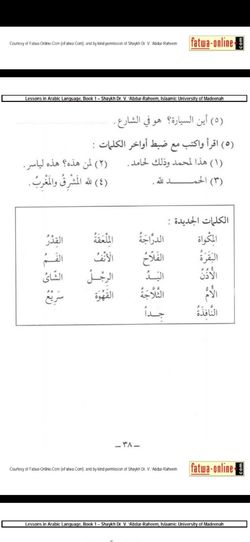 Courtesy of Fatwa-Online.Com (eFatwa.Com), and by kind permission of Shaykh Dr. V. 'Abdur-Raheem
fatwa-online.com
Lessons in Arabic Language, Book 1 – Shaykh Dr. V. 'Abdur-Raheem, Islaamic University of Madeenah
(٥) أين السيارة؟ هو في الشارع.
(٥) اقرأ واكتب مع ضبط أواخر الكلمات :
(١) هذا لمحمد وذلك لحامد. (٢) لمن هذه؟ هذه لياسر.
(٣) الحمـــد لله. (٤) لله المَشْرِقُ والمَغْرِبُ.
الكلمات الجديدة :
المِكْوَاةُ الدرَّاجَةُ المِلْعَقَةُ القِدْرُ
البَقَرَةُ الفَلَّاحُ الأَنْفُ الفَـمُ
الأُذُنُ اليَـدُ الرِجْـلُ الشَّايُ
الأُمُّ الثَّلَّاجَةُ القَهْوَةُ سَرِيْعٌ
النَّافِذَةُ جِـدًّا
– ٣٨ –
Courtesy of Fatwa-Online.Com (eFatwa.Com), and by kind permission of Shaykh Dr. V. 'Abdur-Raheem
fatwa-online.com
Lessons in Arabic Language, Book 1 – Shaykh Dr. V. 'Abdur-Raheem, Islaamic University of Madeenah